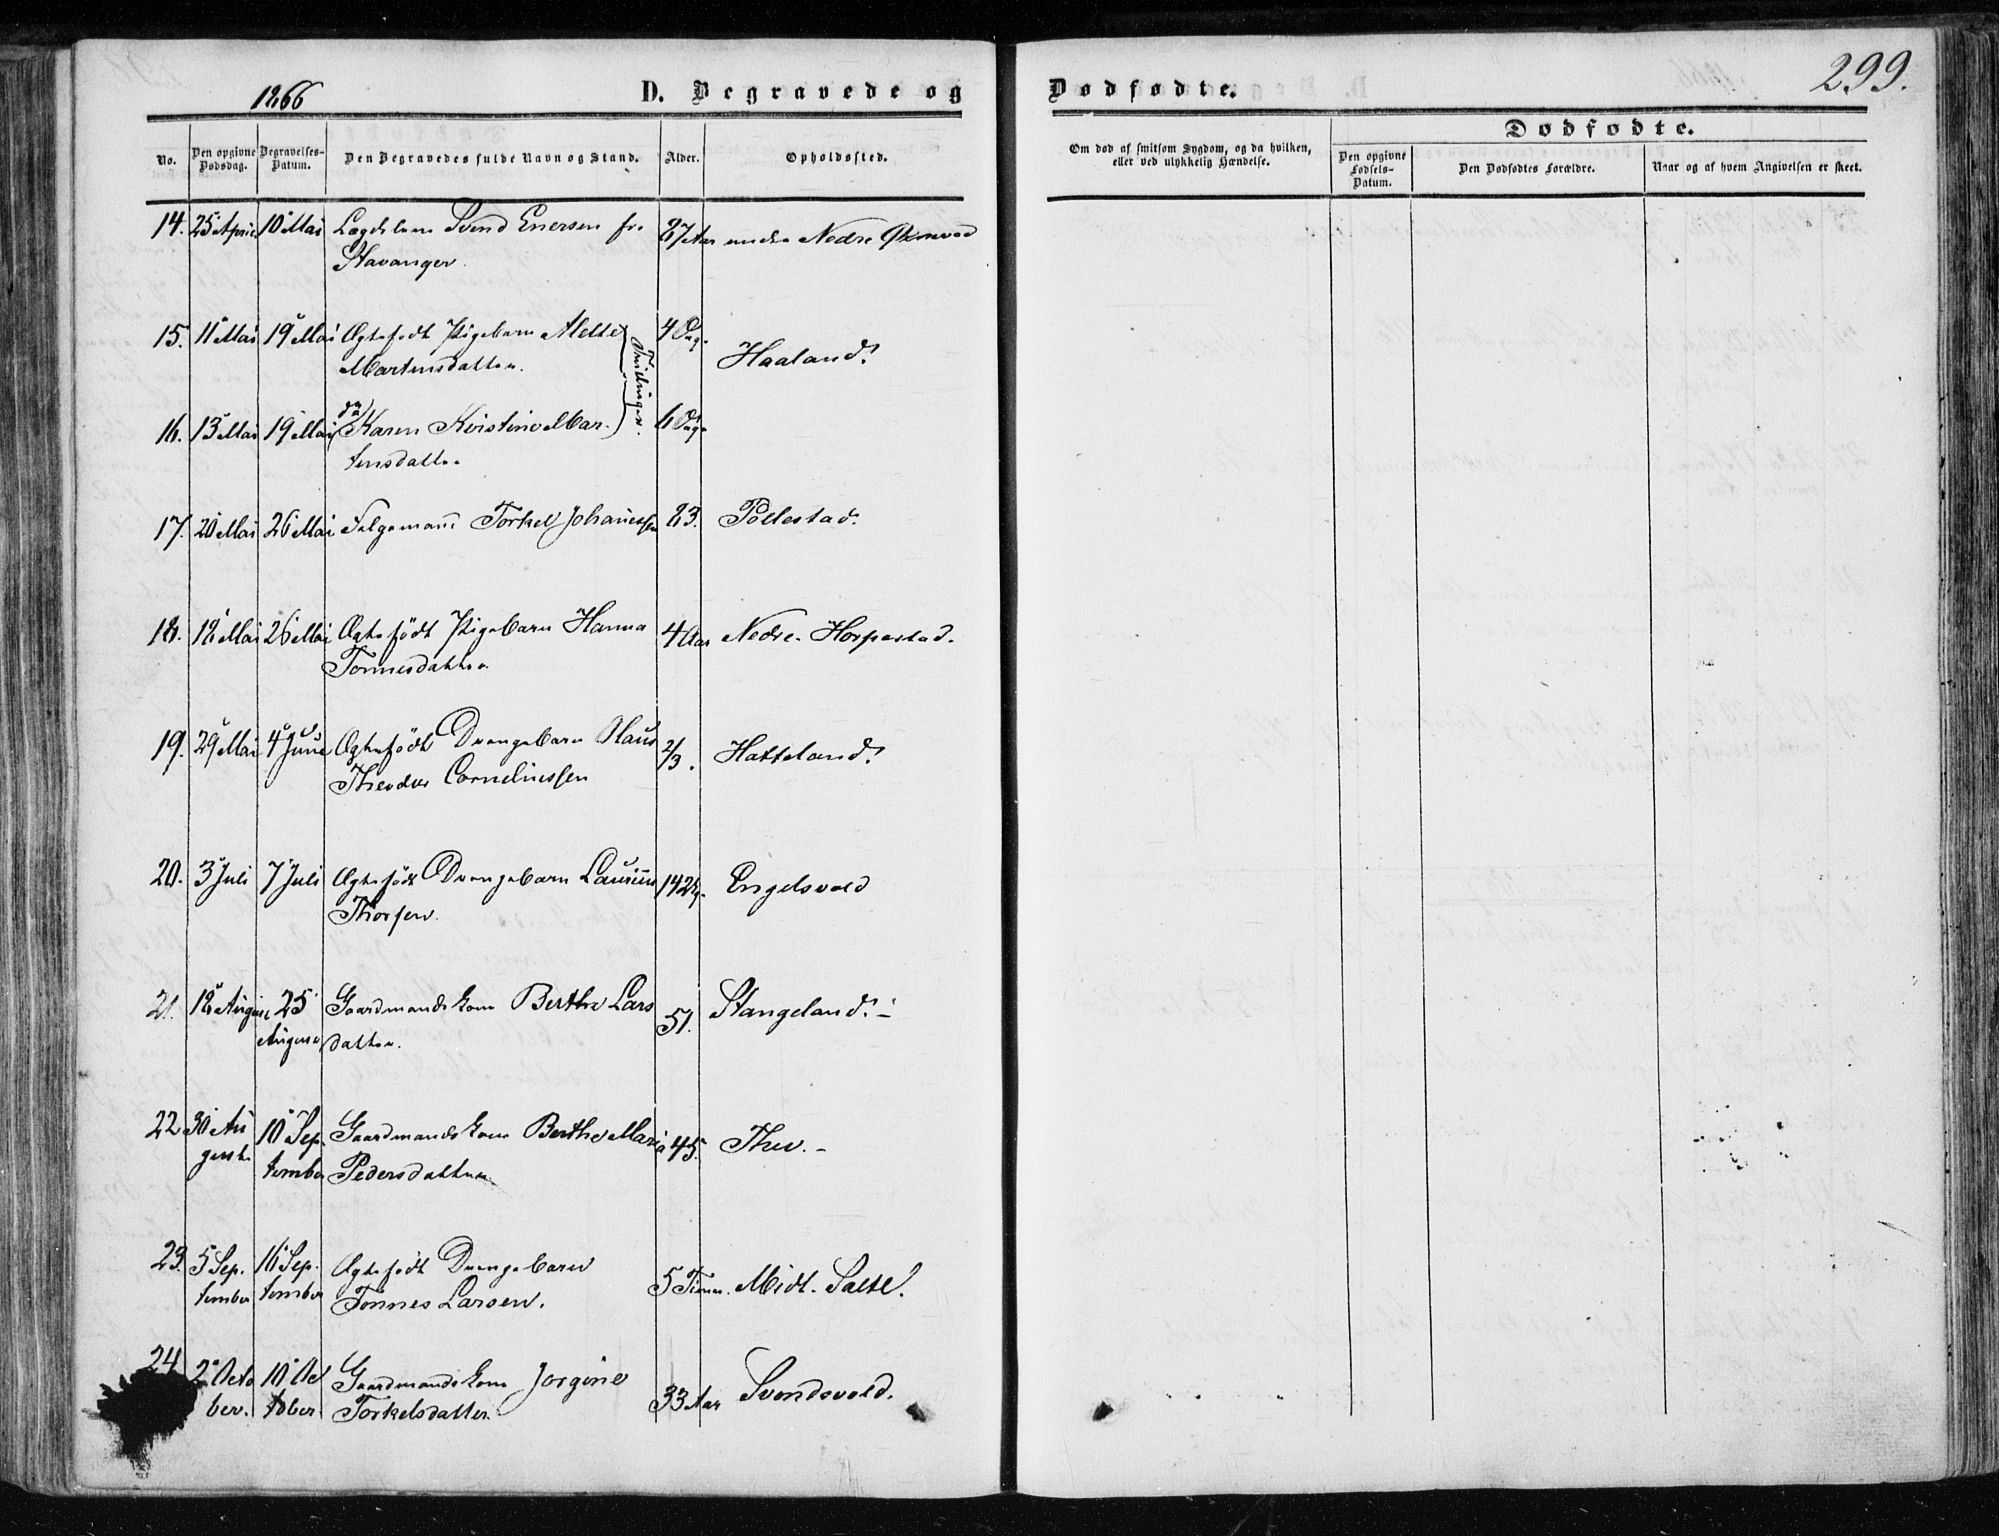 1866
D. Begravede og
Dødfødte.
299.
No.
Den opgivne Dødsdag.
Begravelses-Datum.
Den Begravedes fulde Navn og Stand.
Alder.
Opholdssted.
Om død af smitsom Sygdom, og da hvilken,
eller ved ulykkelig Hændelse.
Dødfødte.
Den opgivne Fødsels-Datum.
Den Dødfødtes Forældre.
Naar og af hvem Angivelsen er skeet.
14. 25 April 10 Mai Lægdslem Svend Enersen fr. 87 Aar Nedre
Stavanger.
15. 11 Mai 19 Mai Ægtefødt Pigebarn Mette 4 Dag. Haaland.
Martinsdatter. Tvillinger.
16. 13 Mai 19 Mai do Karen Kristine Mar- 6 Dage
tinsdatter
17. 20 Mai 26 Mai Følgemand Torkel Johanessen 83. Pollestad.
18. 18 Mai 26 Mai Ægtefödt Pigebarn Hanna 4 Aar Nedre Horpestad.
Tönnesdatter
19. 29 Mai 4 Juni Ægtefödt Drengebarn Olaus 2/3. Hatteland.
Theodor Corneliussen
20. 3 Juli 7 Juli Ægtefödt Drengebarn Laurits Engelsvold
Thorsen.
21. 18 August 25 Gaardmandskone Berthe Lars 51. Stangeland.
August datter.
22 30 Au 10 Sep Gaardmandskone Berthe Maria 45. Thu.
gust. tember Pedersdatter
23. 5 Sep. 16 Sep. Ægtefödt Drengebarn 5 Timer. Midt-Salte.
tember tember Tönnes Larsen.
24 2 Octo 10 Oc Gaardmandskone Jorgine 33 Aar Svendsvold.
ber. tober. Torkelsdatter